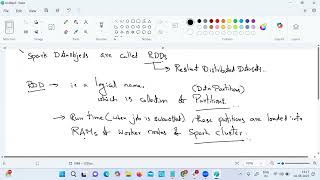 Spark Dataobjects are called RDDs
Resilient Distributed Datasets.
RDD → is a logical name, (Data Partitions)
which is collection of Partitions.
→ Run time (when job is submitted), those partitions are loaded into
RAMs of Worker nodes of Spark cluster..